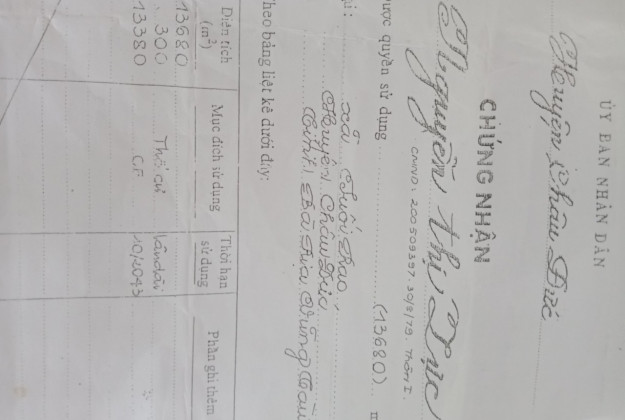 ỦY BAN NHÂN DÂN
Huyện Châu Đức
CHỨNG NHẬN
Nguyễn Thị Trực
CMND: 200509397. 30/8/78. Thôn I.
ược quyền sử dụng (13680)
ại: Xã Suối Rao,
Huyện Châu Đức
Tỉnh Bà Rịa Vũng Tàu
heo bảng liệt kê dưới đây:
Diện tích (m²) Mục đích sử dụng Thời hạn sử dụng Phần ghi thêm
13680
300 Thổ cư Lâu dài
13380 10/2043